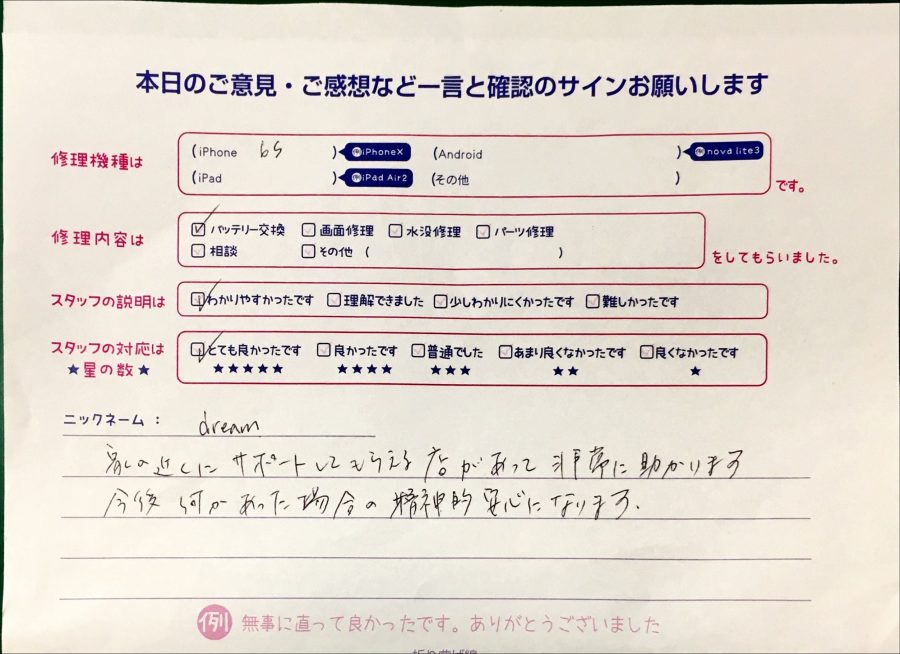 本日のご意見・ご感想など一言と確認のサインお願いします
修理機種は (iPhone 6s )例iPhoneX (Android )例nova lite3
(iPad )例iPad Air2 (その他 ) です。
修理内容は バッテリー交換 画面修理 水没修理 パーツ修理
相談 その他 ( ) をしてもらいました。
スタッフの説明は わかりやすかったです 理解できました 少しわかりにくかったです 難しかったです
スタッフの対応は とても良かったです 良かったです 普通でした あまり良くなかったです 良くなかったです
★星の数★ ★★★★★ ★★★★ ★★★ ★★ ★
ニックネーム： dream
家の近くにサポートしてもらえる店があって非常に助かります
今後何かあった場合の精神的安心になります.
例 無事に直って良かったです。ありがとうございました